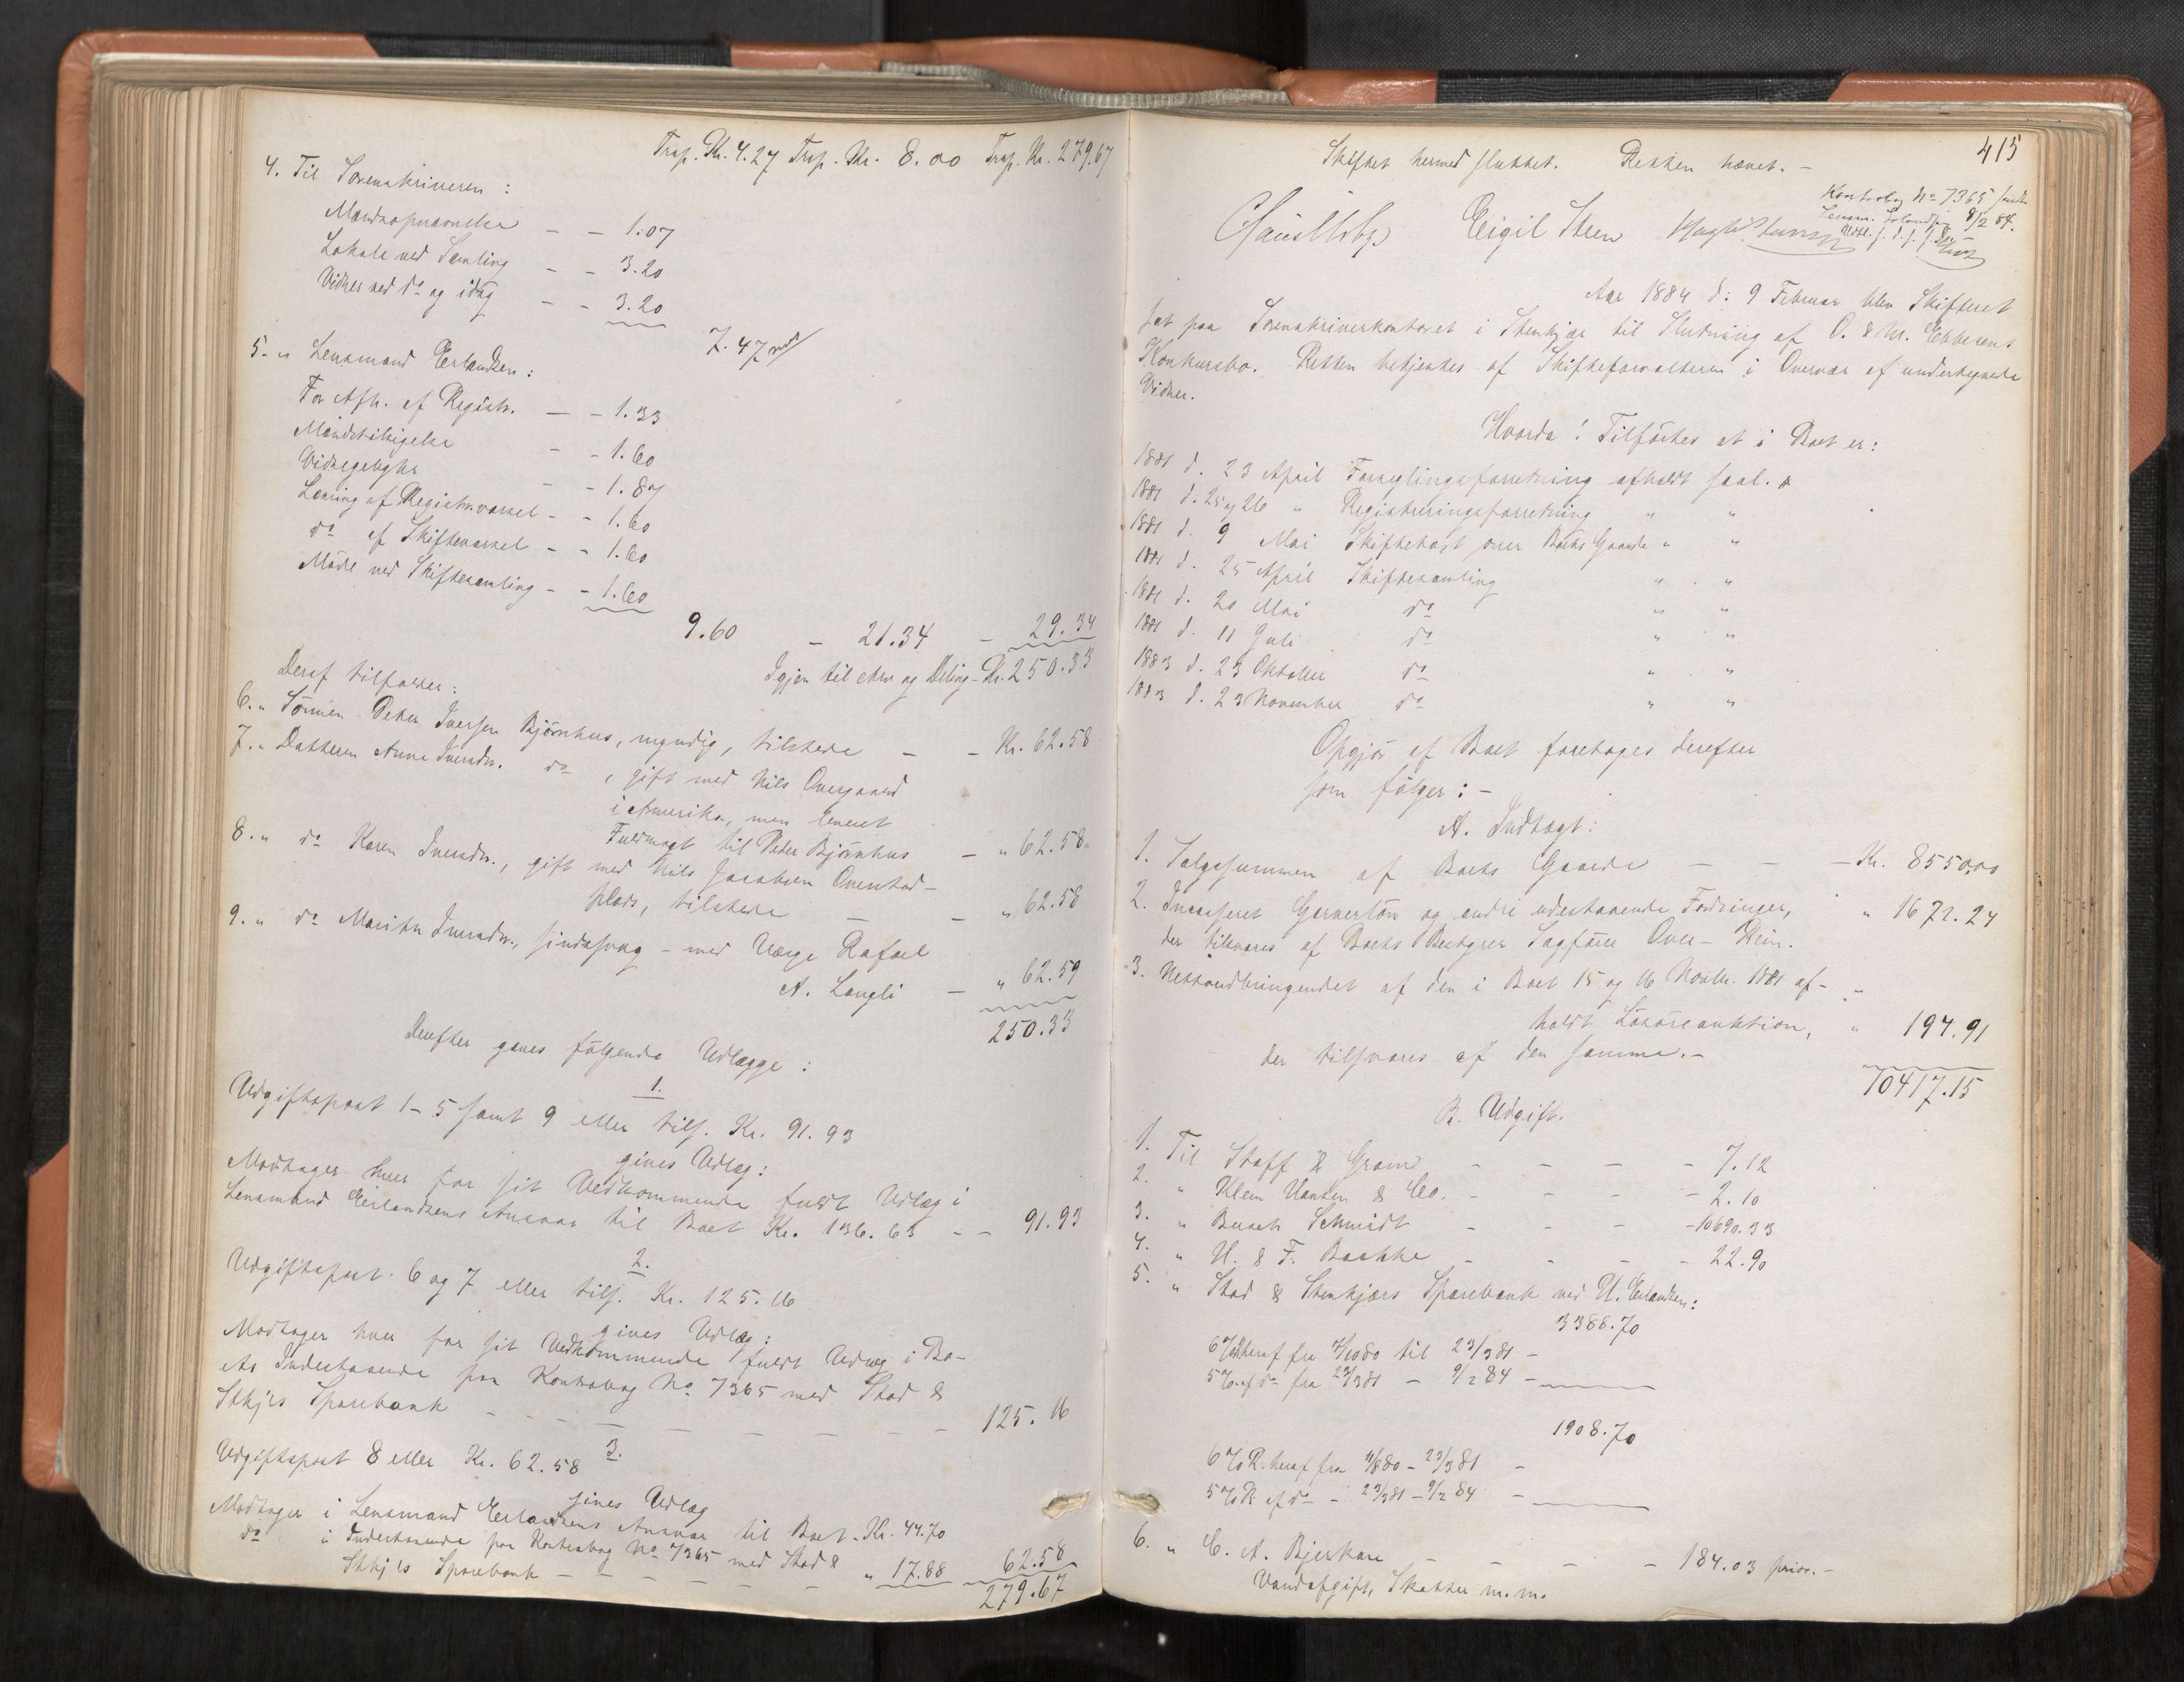 Trsp. Kr. 4.27 Trsp. Kr. 8.00 Trsp. Kr. 279.67
4. Til Sorenskriveren :
Mandsopnævnelse - - 1.07
Lokale ved Samling - - 3.20
Vidner ved do og idag - - 3.20
7.47
5. " Lensmand Erlandsen :
For Afh. af Registr. - - 1.33
Mandstilsigelse - - 1.60
Vidnegodtgj. - - 1.87
Læsning af Registr.varsel - - 1.60
do af Skiftevarsel - - 1.60
Møde ved Skiftesamling - - 1.60
9.60 - 21.34 - 29.34
Igjen til Arv og Deling - Kr. 250.33
Deraf tilfalder :
6. " Sønnen Peter Iversen Bjørnhus, myndig, tilstede - - Kr. 62.58
7. " Datteren Anne Iversdr. do , gift med Nils Overgaard
i Amerika, men leveret
Fuldmagt til Peder Bjørnhus - " 62.58
8. " do Karen Iversdr., gift med Nils Jacobsen Overstad-
plads, tilstede - - " 62.58
9. " do Marithe Iversdr., sindssvag - med Værge Rafael
A. Langli - " 62.59
250.33
Derefter gaves følgende Udlægge :
1.
Udgiftspost 1-5 samt 9 eller tils. Kr. 91.93
gives Udlæg :
Modtager hver for sit Vedkommende fuldt Udlæg i
Lensmand Erlandsens Ansvar til Boet Kr. 136.63 - - 91.93
2.
Udgiftspost 6 og 7 eller tils. Kr. 125.16
gives Udlæg :
Modtager hver for sit Vedkommende fuldt Udlæg i Bo-
ets Indestaaende paa Kontrabog No 7365 med Stod &
Stkjrs Sparebank - - - - - - - - 125.16
3.
Udgiftspost 8 eller Kr. 62.58
gives Udlæg
Modtager i Lensmand Erlandsens Ansvar til Boet - Kr. 44.70
do i Indestaaende paa Kontrabog No 7365 med Stod &
Stkjrs Sparebank - - - - - - " 17.88 62.58
279.67
415
Skiftet hermed sluttet. Retten hævet. -
Kontrabog No 7365 sendt
Lensm. Erlandsen 8/2 84.
Eigil Steen
Aar 1884 d: 9 Februar blev Skifteret
sat paa Sorenskriverkontoret i Stenkjær til Slutning af O. & Nr. Ebbesens
Konkursbo. Retten betjentes af Skifteforvalteren i Overvær af undertegnede
Vidner.
Hvorda ! Tilførtes at i Boet er :
1881 d. 23 April Forseglingsforretning afholdt saal.
1881 d. 25 og 26 " Registreringsforretning " "
1881 d. 9 Mai Skiftetaxt over Boets Gaarde " "
1881 d. 25 April Skiftesamling " "
1881 d. 20 Mai do " "
1881 d. 11 Juli do " "
1883 d. 23 Oktober do " "
1883 d. 23 November do " "
Opgjør af Boet foretages derefter
som følger : -
A. Indtægt :
1. Salgssummen af Boets Gaarde - - - Kr. 8550.00
2. Incasseret Garverløn og andre udestaaende Fordringer, " 1672.24
der tilsvares af Boets Bestyrer Sagfører Over-Rein.
3. Nettoudbringendet af den i Boet 15 og 16 Novbr. 1881 af-
holdt Løsøreauktion, " 194.91
der tilsvares af den samme. -
10417.15
B. Udgift.
1. Til Staff & Gram - - - - 7.12
2. " Klem Hansen & Co. - - - - 2.10
3. " Busch Schmidt - - - - 10690.33
4. " H. & F. Baathe - - - - 22.90
5. " Stod & Stenkjærs Sparebank ved H. Erlandsen :
3388.70
6% R. heraf fra 7/10 80 til 23/3 81 -
5% af do fra 23/3 81 - 9/2 84 -
1908.70
6% R. heraf fra 11/8 80 - 23/3 81 -
5% R af do - 23/3 81 - 9/2 84 -
6. " C. A. Bjerkan - - - - 184.03 prior. -
Vandafgift, Skatter m. m.